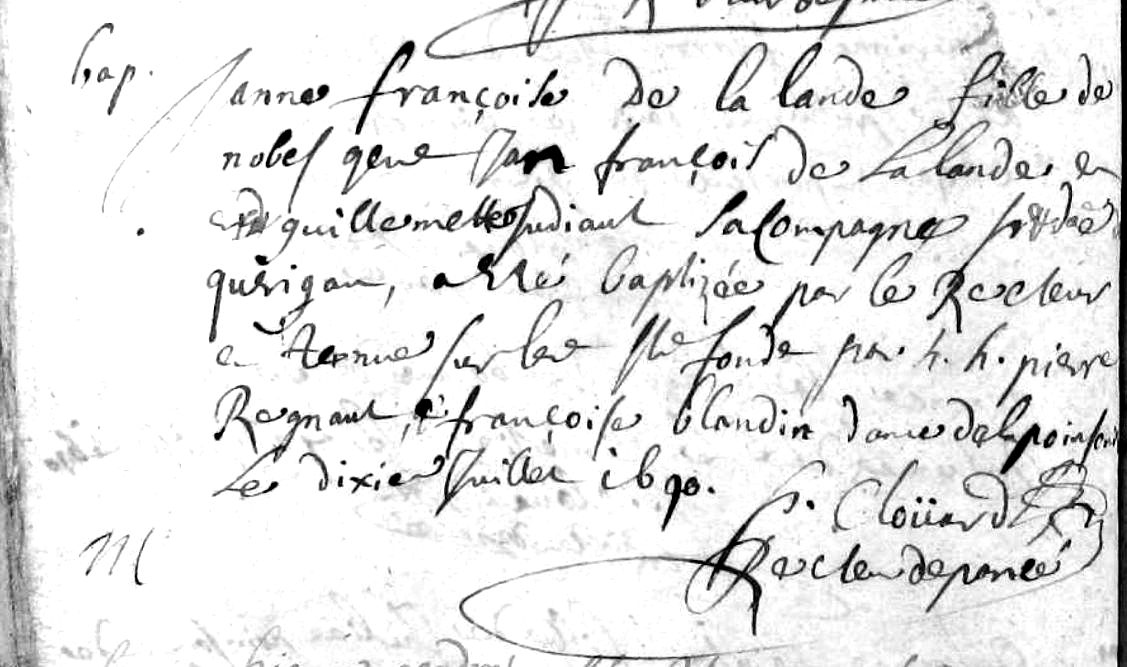 bap.
Janne françoise De la lande fille de
nobes gens Jan françois de La lande et
guillemette Judiaut sa Compagne
quérigan, a esté baptizée par le Recteur
et tenue sur les ste fonds par h. h. pierre
Regnaut, & françoise blandin dame de la
Le dixie Juillet 1690.
Cloüard
Recteur de pancé
M